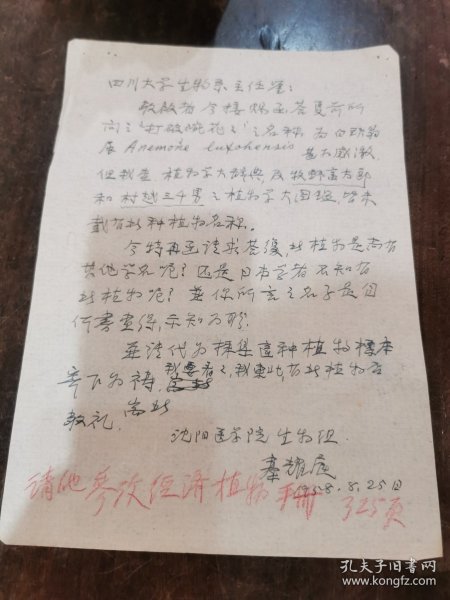 四川大学生物系主任鉴：
敬啟者今接赐函答复前所
问之“打破碗花”之名称为白头翁
属Anemone luxohensis 甚为感激
但我查植物学大辞典及牧野富太郎
和村越三千男之植物学大图鉴，皆未
载有此种植物名称。
今特再函请求答復，此植物是尚有
其他学名呢？还是日本学者不知有
此植物呢？并你所言之名子是由
何书查得，示知为盼
并请代为採集这种植物標本
寄下为禱，我要看之，我東北有此植物否
敬礼，
沈阳医学院生物组
1958.8.25日
请他参改经济植物手册 325页
孔夫子旧书网
www.kongfz.com